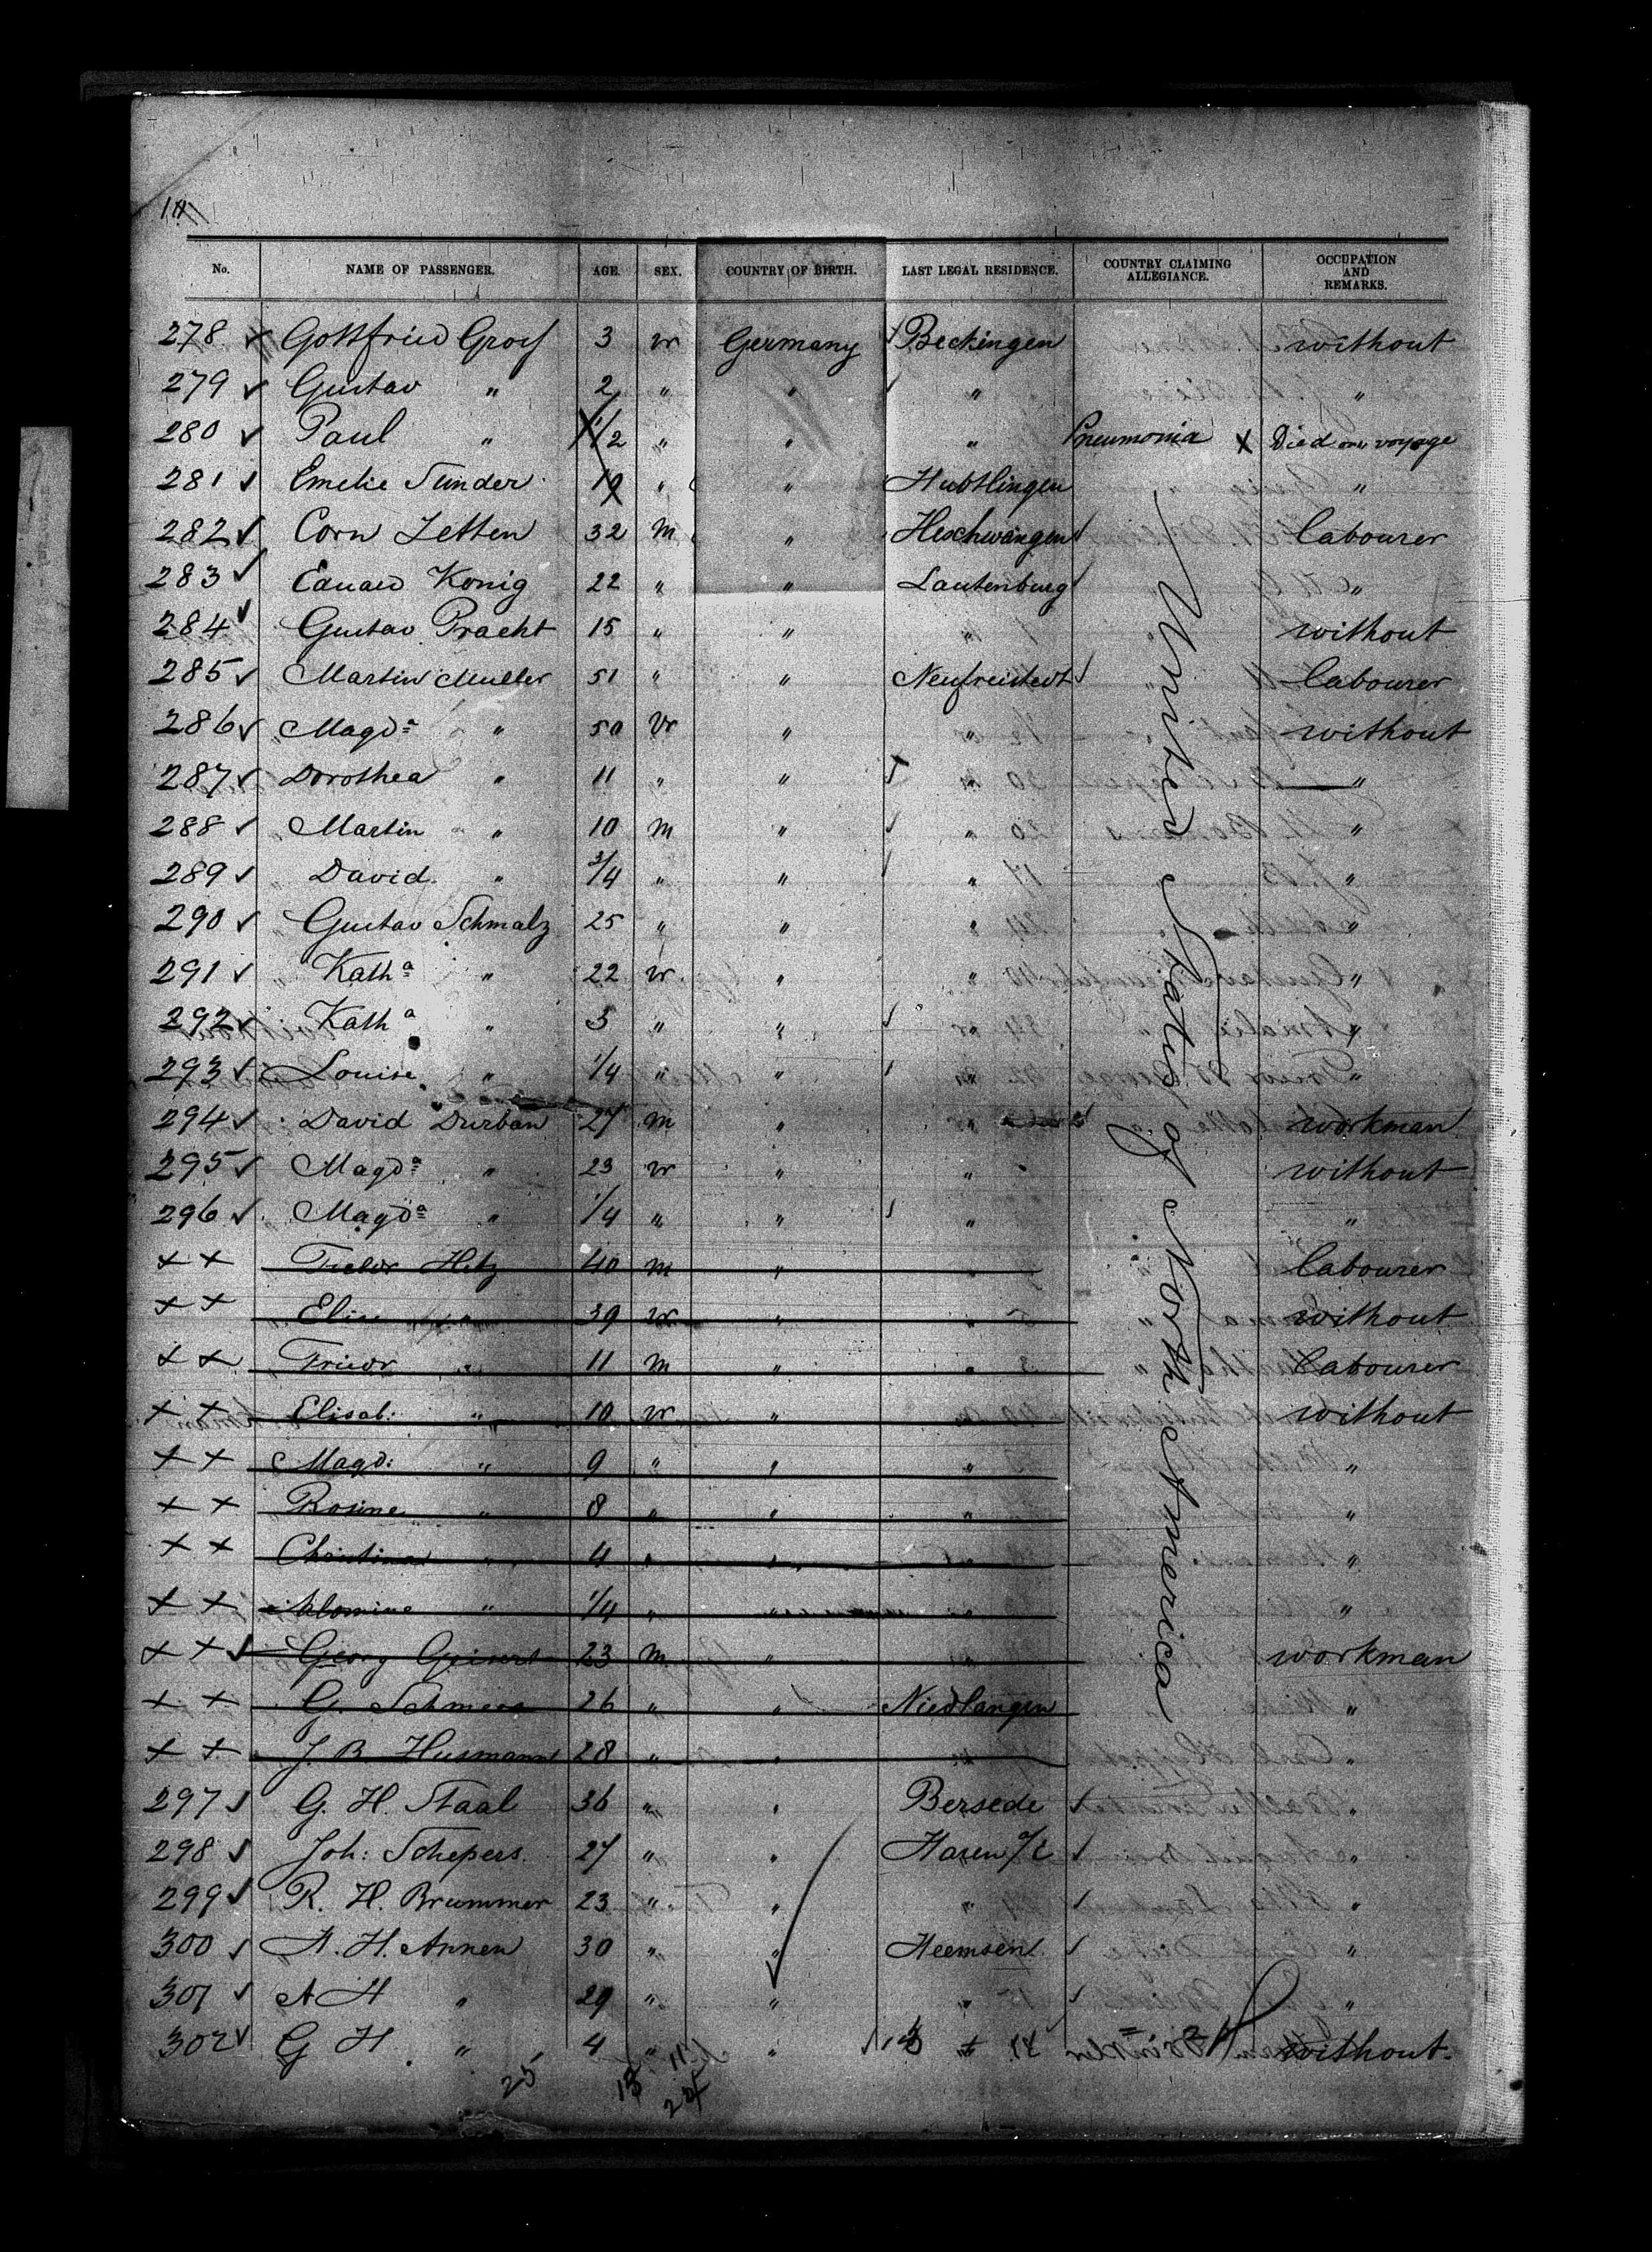 No. NAME OF PASSENGER. AGE. SEX. COUNTRY OF BIRTH. LAST LEGAL RESIDENCE. COUNTRY CLAIMING ALLEGIANCE. OCCUPATION AND REMARKS.
278 Gottfried Grof 3 w Germany Beckingen without
279 Gustav " 2 " " " "
280 Paul " 1/2 " " " Pneumonia X Died on voyage
281 Emelie Sunder 19 " " "
282 Corn Zetten 32 m " Heschwangen labourer
283 Eduard Konig 22 " " Lautenburg "
284 Gustav Pracht 15 " " " without
285 Martin Muller 51 " " Neufreistedt labourer
286 Magda " 50 w " " without
287 Dorothea " 11 " " " "
288 Martin " 10 m " " "
289 David " 3/4 " " " "
290 Gustav Schmalz 25 " " " "
291 Katha " 22 w " " "
292 Katha " 3 " " " "
293 Louise " 1/4 " " " "
294 David Durban 27 m " " workman
295 Magda " 23 w " " without
296 Magda " 1/4 " " " "
++ Hetz 40 m " " labourer
++ Elise " 39 w " " without
++ Friedr " 11 m " " labourer
++ Elisab: " 10 w " " without
++ Magd: " 9 " " " "
++ Rosine " 8 " " " "
++ Christina " 4 " " " "
++ " 1/4 " " " "
++ Georg Geisert 23 m " " workman
++ G. 26 " " Niedlangen "
++ J. B. Husmann 28 " " " "
297 G. H. Staal 36 " " Bersede "
298 Joh: Schepers 27 " " Haren "
299 R. H. Brummer 23 " " " "
300 H. H. Annen 30 " " Heemsen "
301 A H " 29 " " " "
302 G H " 4 " " " without
United States of North America
25